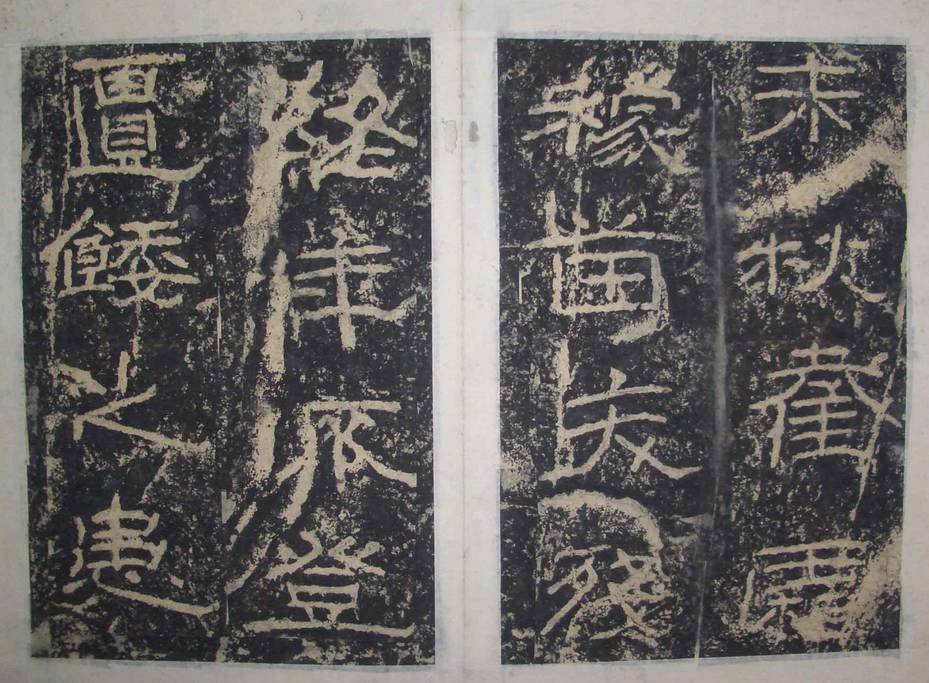 未秋截霜
稼苗夭殘
終年不登
匱餧之患